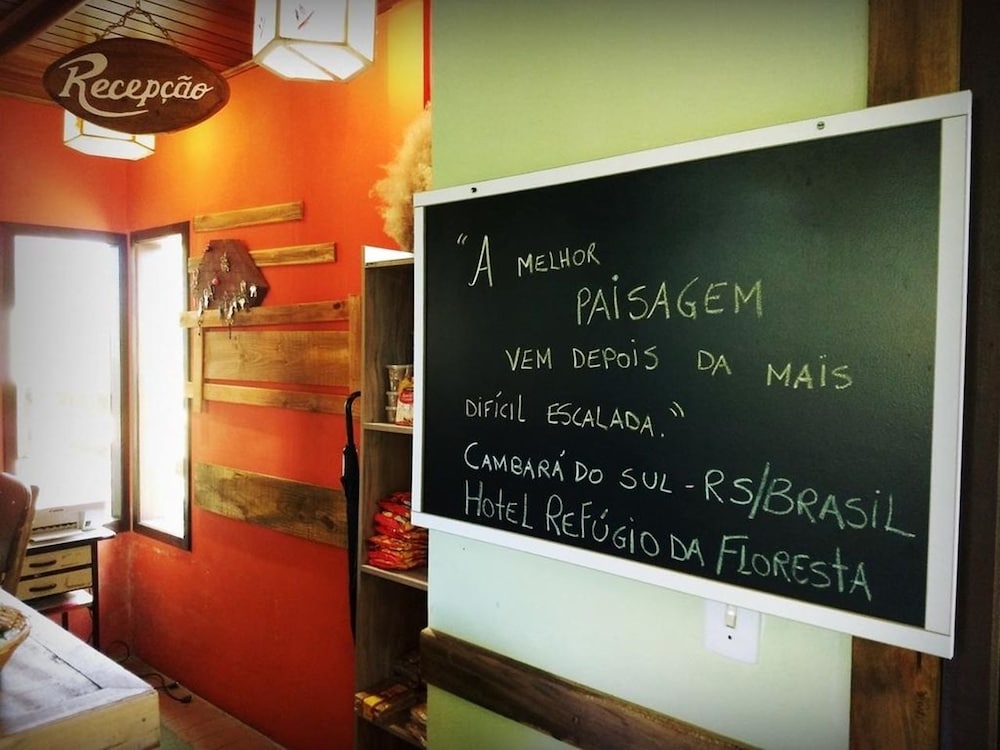 Recepção
"A MELHOR
PAISAGEM
VEM DEPOIS DA MAIS
DIFÍCIL ESCALADA."
CAMBARÁ DO SUL - RS/BRASIL
HOTEL REFÚGIO DA FLORESTA